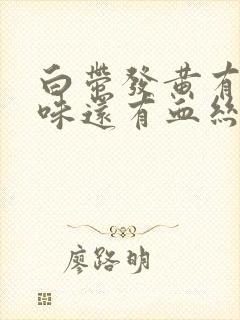 白带發黄有
味還有血絲
廖路明